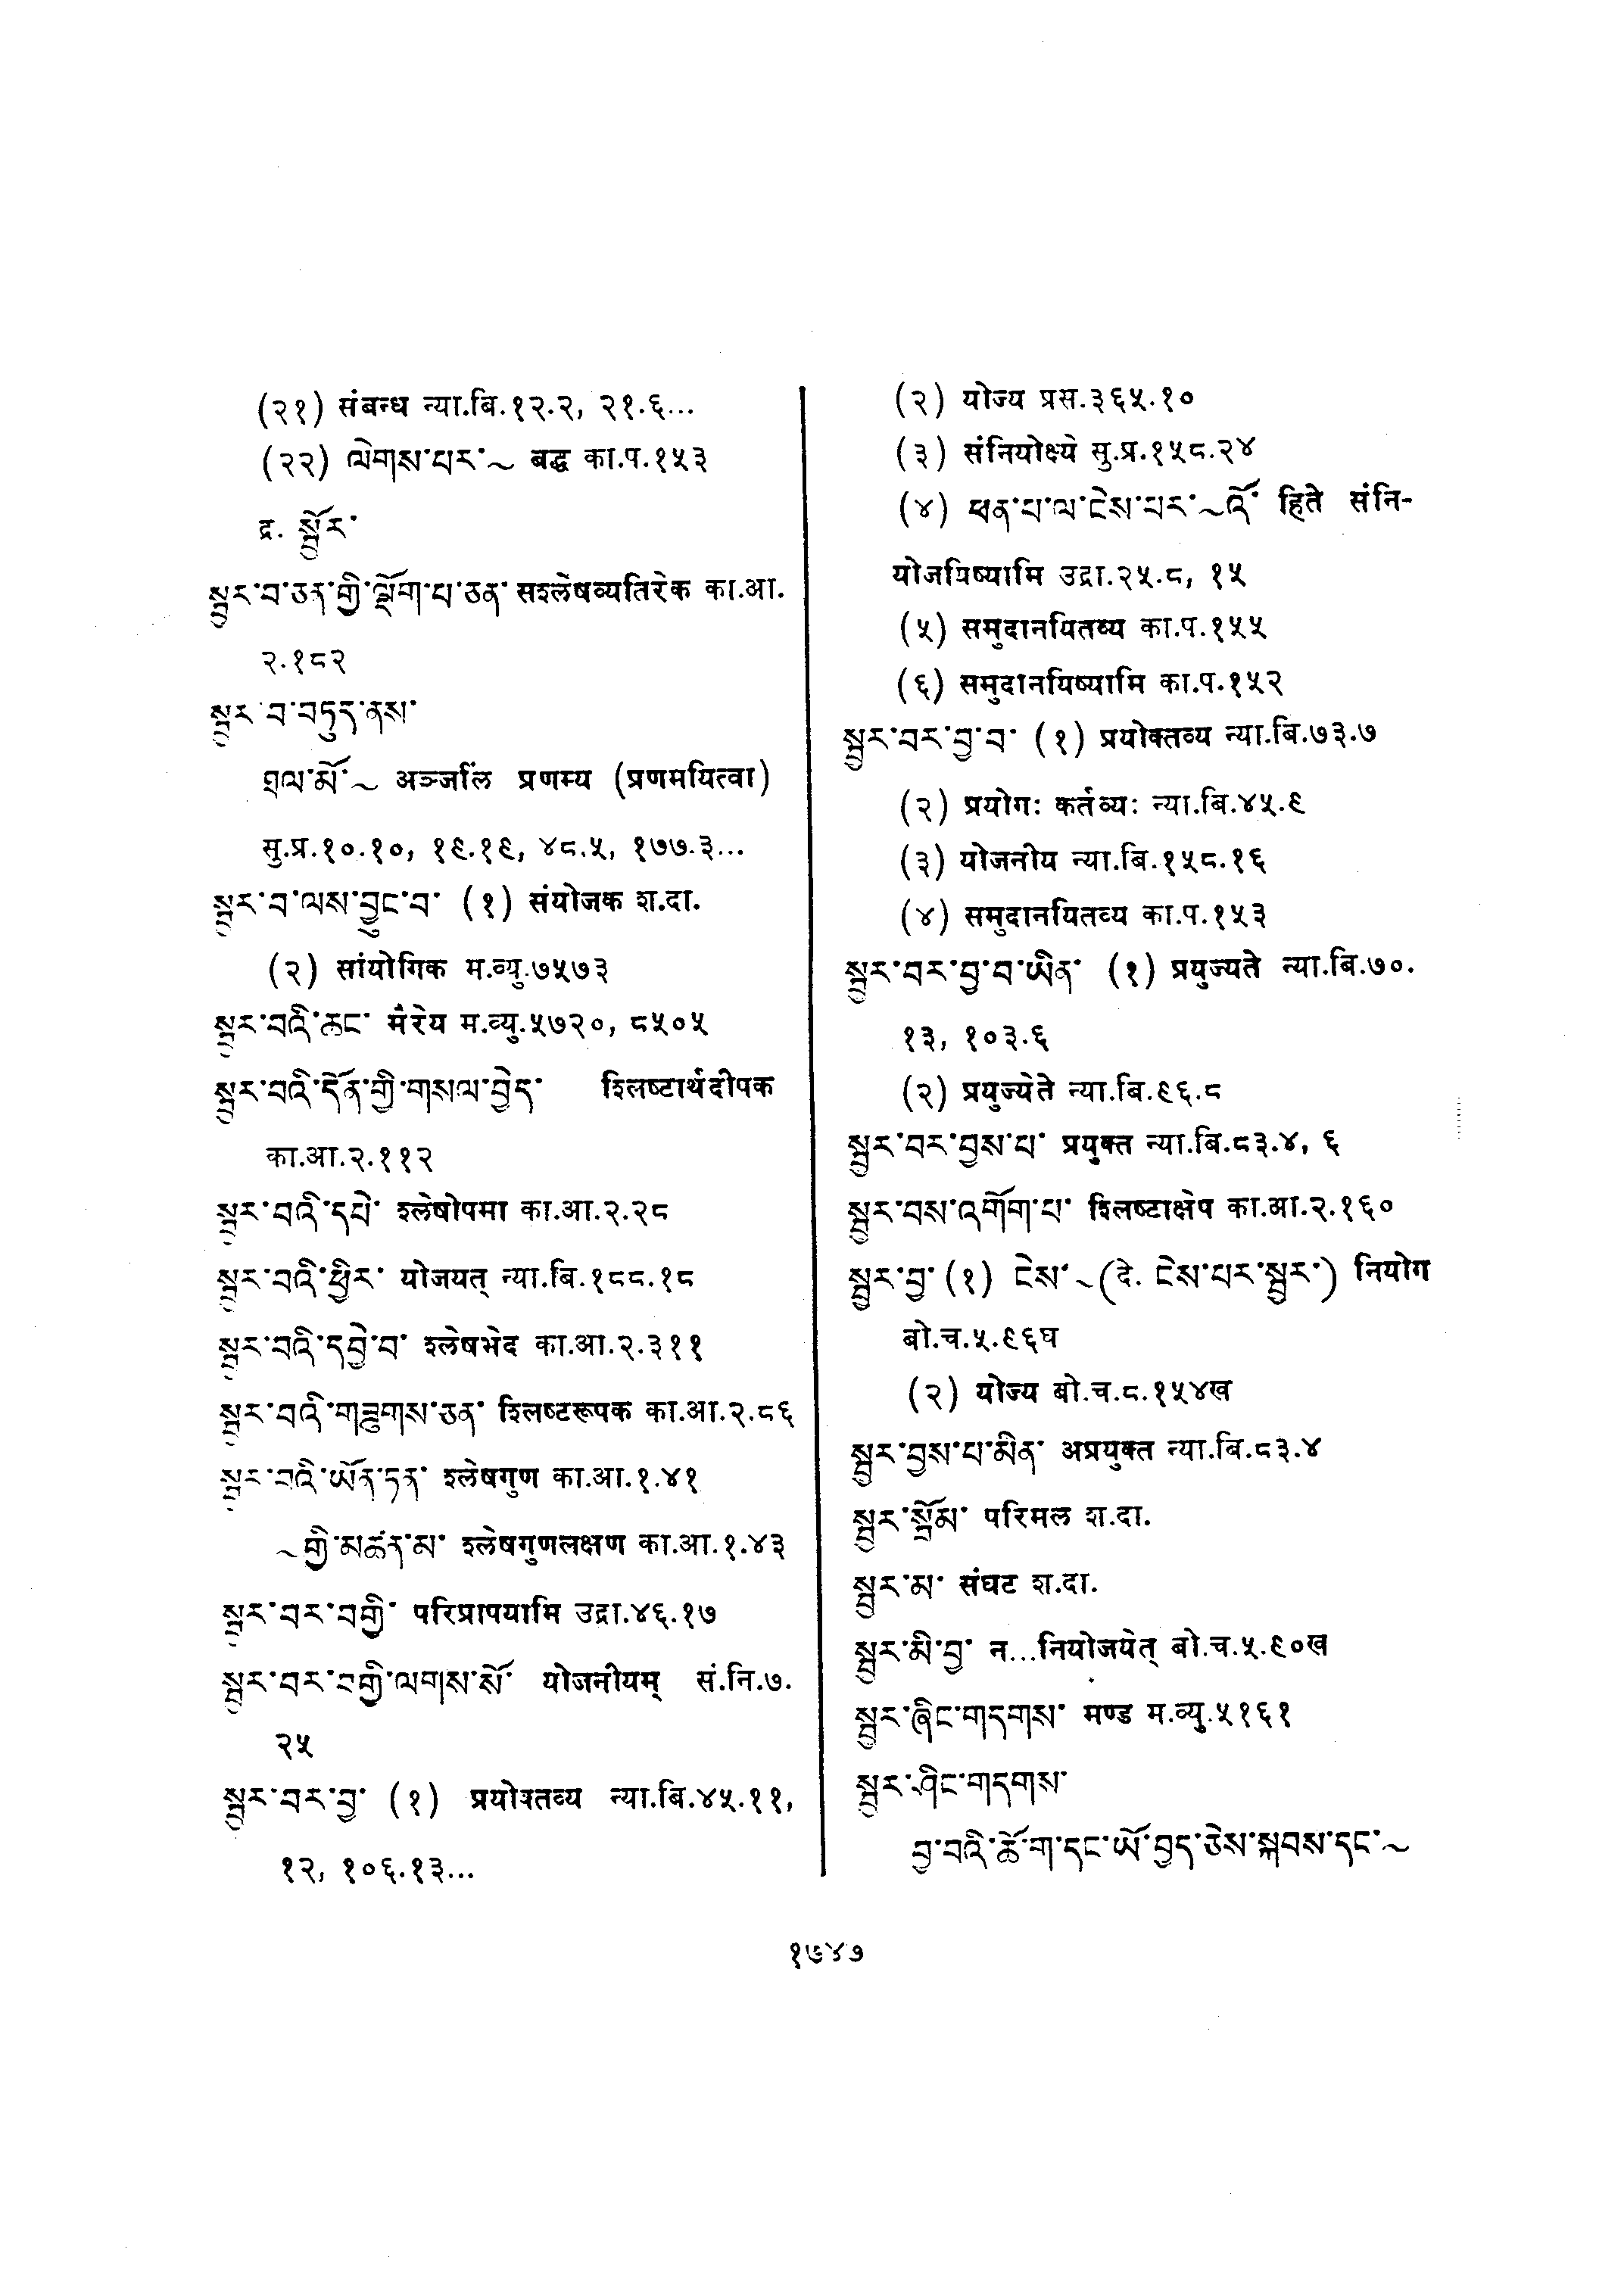 (२१) संबन्ध न्या.बि.१२.२, २१.६...
(२२) ལེགས་པར་~ बद्ध का.प.१५३
द्र. སྦྱོར་
སྦྱར་བ་ཅན་གྱི་ལྡོག་པ་ཅན་ सश्लेषव्यतिरेक का.आ.
२.१८२
སྦྱར་བ་བཏུད་ནས་
ཐལ་མོ་~ अञ्जलिं प्रणम्य (प्रणमयित्वा)
सु.प्र.१०.१०, १९.१९, ४८.५, १७७.३...
སྦྱར་བ་ལས་བྱུང་བ་ (१) संयोजक श.दा.
(२) सांयोगिक म.व्यु.७५७३
སྦྱར་བའི་ཆང་ मैरेय म.व्यु.५७२०, ८५०५
སྦྱར་བའི་དོན་གྱི་གསལ་བྱེད་ श्लिष्टार्थदीपक
का.आ.२.११२
སྦྱར་བའི་དཔེ་ श्लेषोपमा का.आ.२.२८
སྦྱར་བའི་ཕྱིར་ योजयत् न्या.बि.१८८.१८
སྦྱར་བའི་དབྱེ་བ་ श्लेषभेद का.आ.२.३११
སྦྱར་བའི་གཟུགས་ཅན་ श्लिष्टरूपक का.आ.२.८६
སྦྱར་བའི་ཡོན་ཏན་ श्लेषगुण का.आ.१.४१
~གྱི་མཚན་མ་ श्लेषगुणलक्षण का.आ.१.४३
སྦྱར་བར་བགྱི་ परिप्रापयामि उद्रा.४६.१७
སྦྱར་བར་བགྱི་ལགས་སོ་ योजनीयम् सं.नि.७.
२५
སྦྱར་བར་བྱ་ (१) प्रयोक्तव्य न्या.बि.४५.११,
१२, १०६.१३...
(२) योज्य प्रस.३६५.१०
(३) संनियोक्ष्ये सु.प्र.१५८.२४
(४) ཕན་པ་ལ་ངེས་པར་~འོ་ हिते संनि-
योजयिष्यामि उद्रा.२५.८, १५
(५) समुदानयितव्य का.प.१५५
(६) समुदानयिष्यामि का.प.१५२
སྦྱར་བར་བྱ་བ་ (१) प्रयोक्तव्य न्या.बि.७३.७
(२) प्रयोगः कर्तव्यः न्या.बि.४५.९
(३) योजनीय न्या.बि.१५८.१६
(४) समुदानयितव्य का.प.१५३
སྦྱར་བར་བྱ་བ་ཡིན་ (१) प्रयुज्यते न्या.बि.७०.
१३, १०३.६
(२) प्रयुज्येते न्या.बि.९६.८
སྦྱར་བར་བྱས་པ་ प्रयुक्त न्या.बि.८३.४, ६
སྦྱར་བས་འགོག་པ་ श्लिष्टाक्षेप का.आ.२.१६०
སྦྱར་བྱ་ (१) ངེས་~(दे. ངེས་པར་སྦྱར་) नियोग
बो.च.५.९६घ
(२) योज्य बो.च.८.१५४ख
སྦྱར་བྱས་པ་མིན་ अप्रयुक्त न्या.बि.८३.४
སྦྱར་སྲོམ་ परिमल श.दा.
སྦྱར་མ་ संघट श.दा.
སྦྱར་མི་བྱ་ न...नियोजयेत् बो.च.५.९०ख
སྦྱར་ཞིང་གདགས་ मण्ड म.व्यु.५१६१
སྦྱར་ཤིང་གདགས་
བྱ་བའི་ཆོ་ག་དང་ཡོ་བྱད་ཅེས་སྐབས་དང་~
१७४७